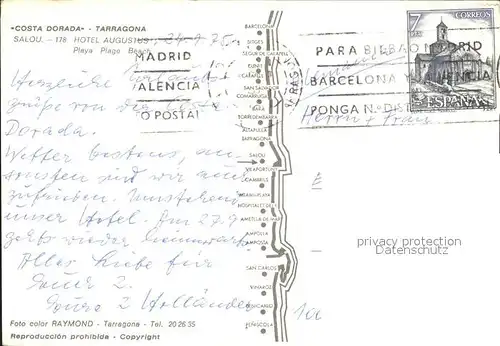 «COSTA DORADA» - TARRAGONA
SALOU. - 178 HOTEL AUGUSTUS
Playa Plage Beach
MADRID
VALENCIA
O POSTAL
PARA BILBAO MADRID
BARCELONA Y VALENCIA
PONGA N. DIST
7
PTA
CORREOS
ESPAÑA
Herrn u. Frau
Herzliche
Grüße von der
Dorada.
Wetter bestens, an-
sonsten sind wir auch
zufrieden. Umstehend
unser Hotel. Am 27.9
geht's wieder heimwärts
Alles Liebe für
Euer 2.
Eure 2 Holländer
BARCELONA
SITGES
SEGUR DE CALAFELL
CUNIT
CALAFELL
SAN SALVADOR
COMARRUGA
BARA
TORREDEMBARRA
ALTAFULLA
TARRAGONA
SALOU
VILAFORTUNY
CAMBRILS
MIAMI PLAYA
HOSPITALET
AMETLLA DE MAR
AMPOLLA
AMPOSTA
SAN CARLOS
VINAROZ
BENICARLO
PEÑISCOLA
privacy protection
Datenschutz
Foto color RAYMOND - Tarragona - Tel. 20 26 55
Reproducción prohibida - Copyright